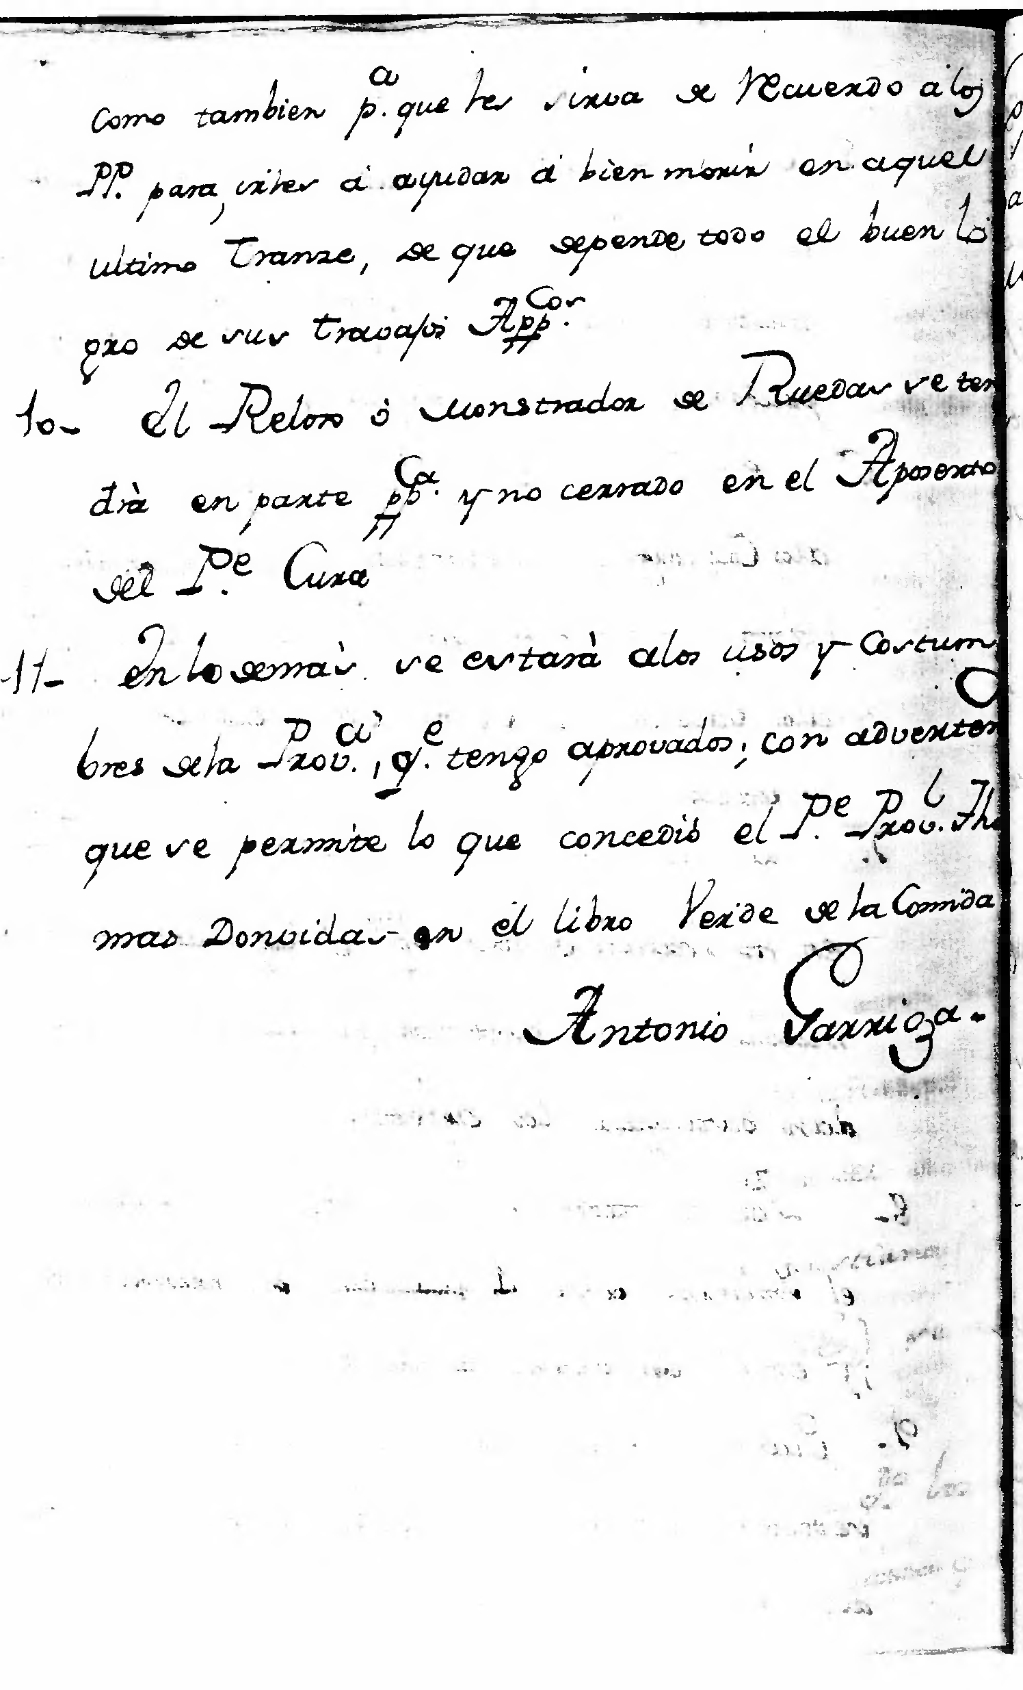 Como tambien p.ª que les sirva de recuerdo a los
PP. para irles á ayudar á bien morir en aquel
ultimo Tranze, de que depende todo el buen lo
gro de sus travajos App.cos
10- El Relox ó Monstrador de Ruedas se ten
drà en parte pp.ca y no cerrado en el Aposento
del P.e Cura
11- En lo demàs se estarà a los usos y Costum
bres de la Prov.ª, q.e tengo aprovados, con adverten
que se permite lo que concediò el P.e Prov.l Tho
mas Donvidas en el libro Verde de la Comida
Antonio Garriga-